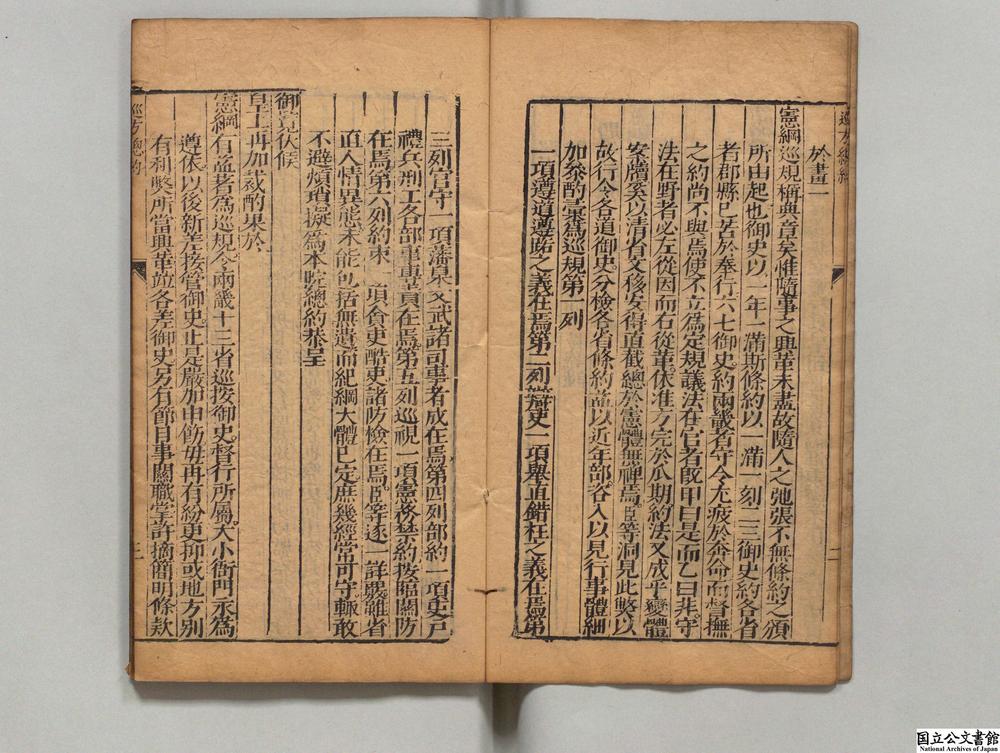 於畫一
憲綱巡規稱典章矣惟隨事之興革未盡故隨人之弛張不無條約之頒
所由起也御史以一年一滿斯條約以一滿一刻二三御史約各省
者郡縣已苦於奉行六七御史約兩畿者守令尤疲於奔命而督撫
之約尚不與焉使不立爲定規議法在官者旣甲曰是而乙曰非守
法在野者必左從因而右從革依准方完於瓜期約法又成乎變體
案牘奚以清省文移安得道截總於憲體無裨焉臣等洞見此弊以
故行令各道御史分檢各省條約益以近年部咨入以見行事體細
加叅酌彙爲巡規第一列
一項遵道遵路之義在焉第二列辯吏一項舉直錯枉之義在焉第
三列官守一項藩臬文武諸司事者成在焉第四列部約一項吏戶
禮兵刑工各部重事責在焉第五列巡視一項憲務禁約按臨關防
在焉第六列約束一項貪吏酷吏諸防檢在焉臣等逐一詳議雖省
直人情異態未能包括無遺而紀綱大體已定庶幾經常可守輙敢
不避煩瑣擬爲本院總約恭呈
御覽伏候
皇上再加裁酌果於
憲綱有益著爲巡規令兩畿十三省巡按御史督行所屬大小衙門永爲
遵依以後新差接管御史止是嚴加申飭毋再有紛更抑或地方別
有利弊所當興革竝各差御史另有節目事關職掌許摘簡明條款
巡方總約
二
巡方總約
三
国立公文書館
National Archives of Japan